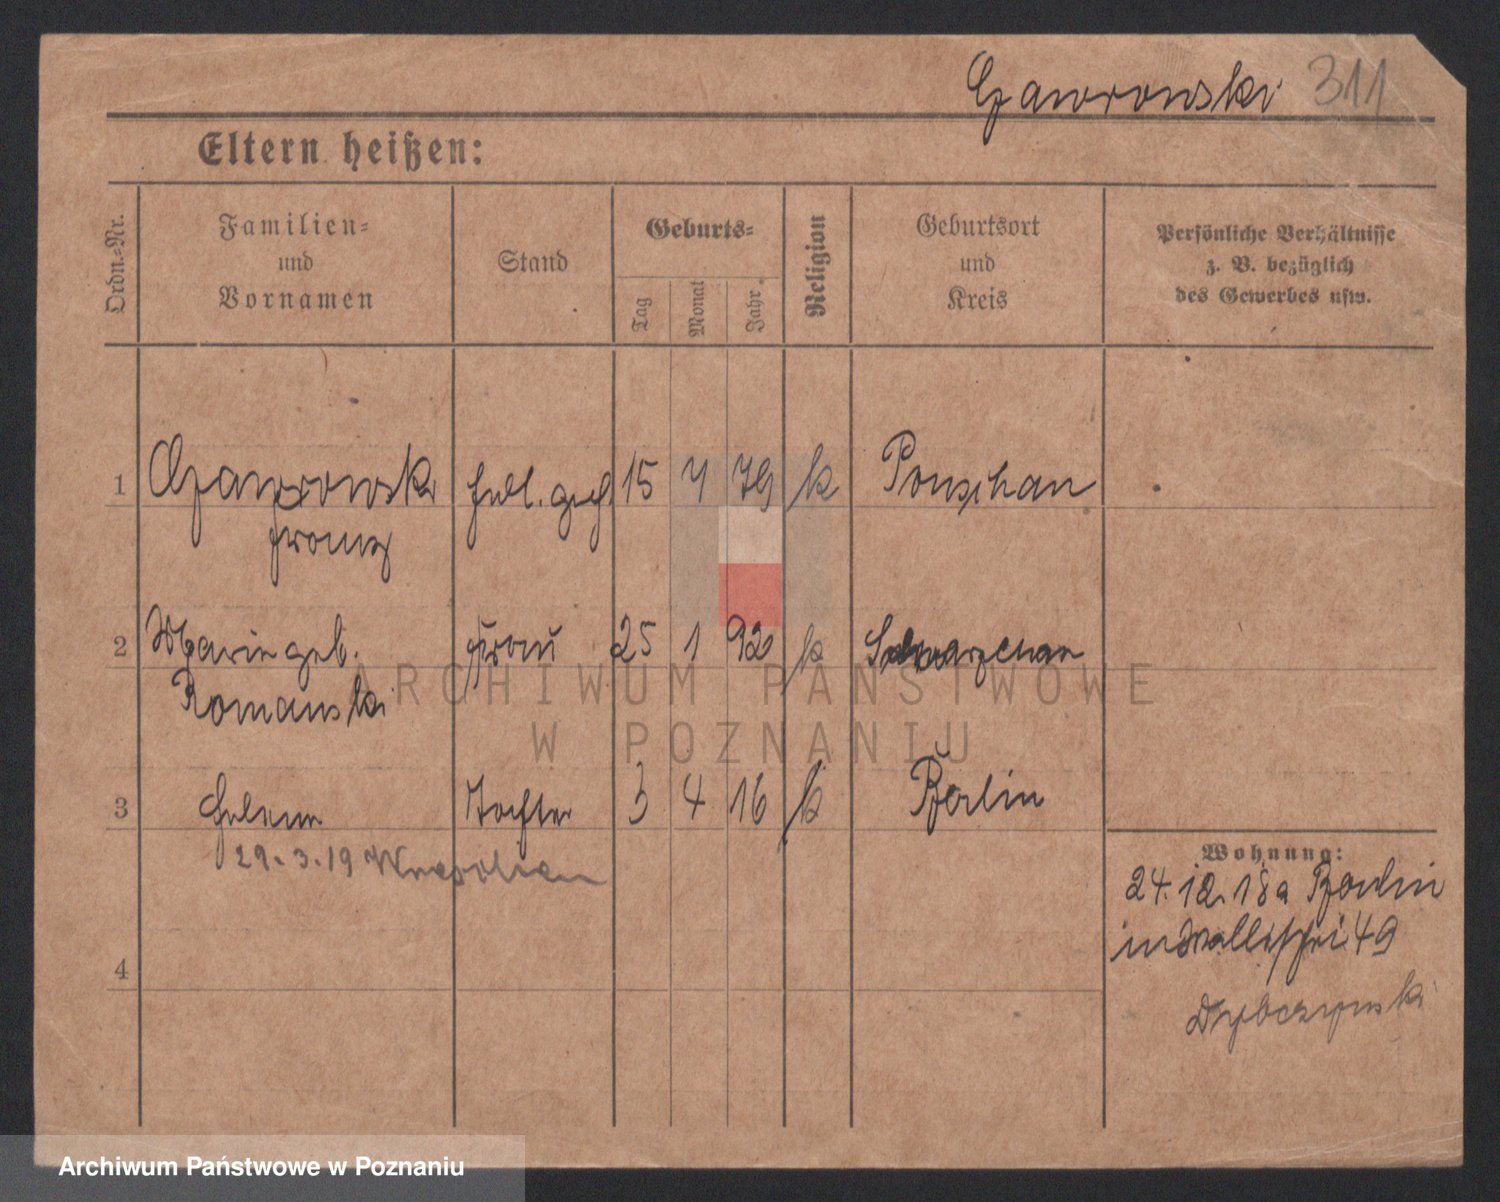 Gaworowski 311
Eltern heißen:
Ordn.-Nr.
Familien-
und
Vornamen
Stand
Geburts-
Tag
Monat
Jahr
Religion
Geburtsort
und
Kreis
Persönliche Verhältnisse
z. B. bezüglich
des Gewerbes usw.
1 15 79 k
Franz
2 Marie geb. Frau 25 1 92 k
Romanski
3 Helene Tochter 3 4 16 k Berlin
29.3.19
Wohnung:
24.12.18 a Berlin
in Wallischei 49
4
ARCHIWUM PAŃSTWOWE
W POZNANIU
Archiwum Państwowe w Poznaniu